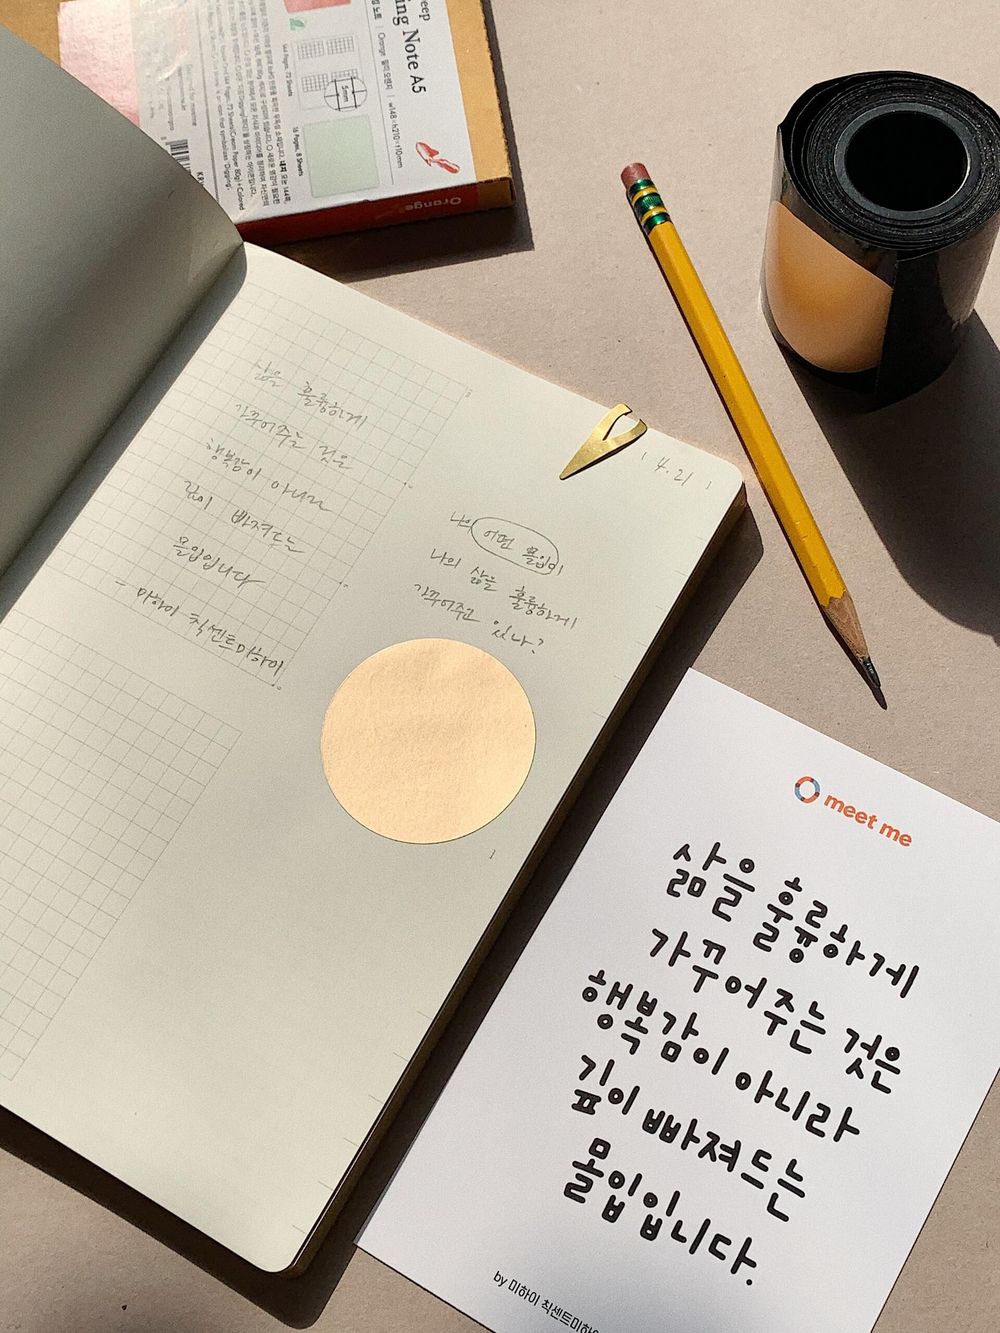 eep
ing Note A5
Orange
w148×h210×t10mm
5mm
144 Pages, 72 Sheets
16 Pages, 8 Sheets
Orange
삶을 훌륭하게
가꾸어주는 것은
행복감이 아니라
깊이 빠져드는
몰입입니다
- 미하이 칙센트미하이
4.21
나의 어떤 몰입이
나의 삶을 훌륭하게
가꾸어주고 있나?
meet me
삶을 훌륭하게
가꾸어주는 것은
행복감이 아니라
깊이 빠져드는
몰입입니다.
by 미하이 칙센트미하이